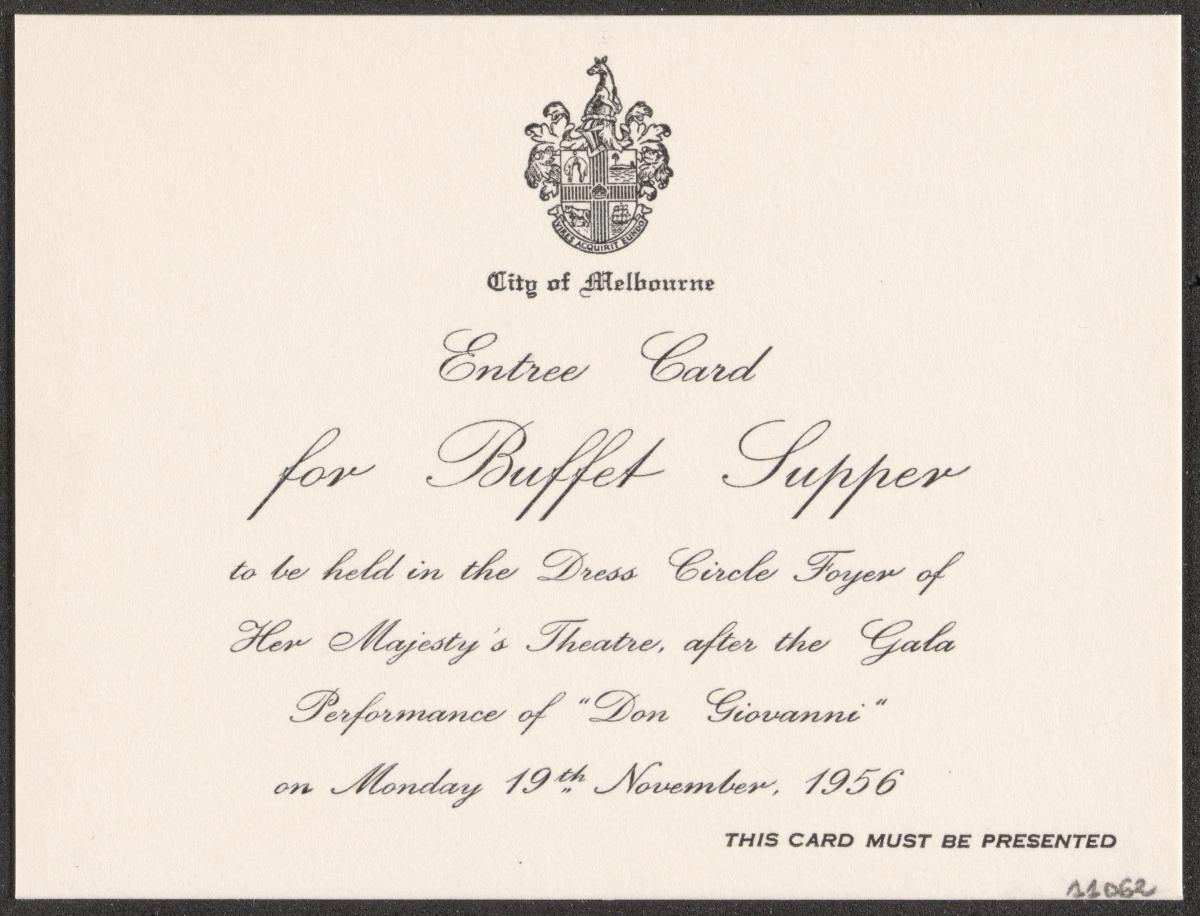 VIRES ACQUIRIT EUNDO
City of Melbourne
Entree Card
for Buffet Supper
to be held in the Dress Circle Foyer of
Her Majesty's Theatre, after the Gala
Performance of "Don Giovanni"
on Monday 19th November, 1956
THIS CARD MUST BE PRESENTED
11062